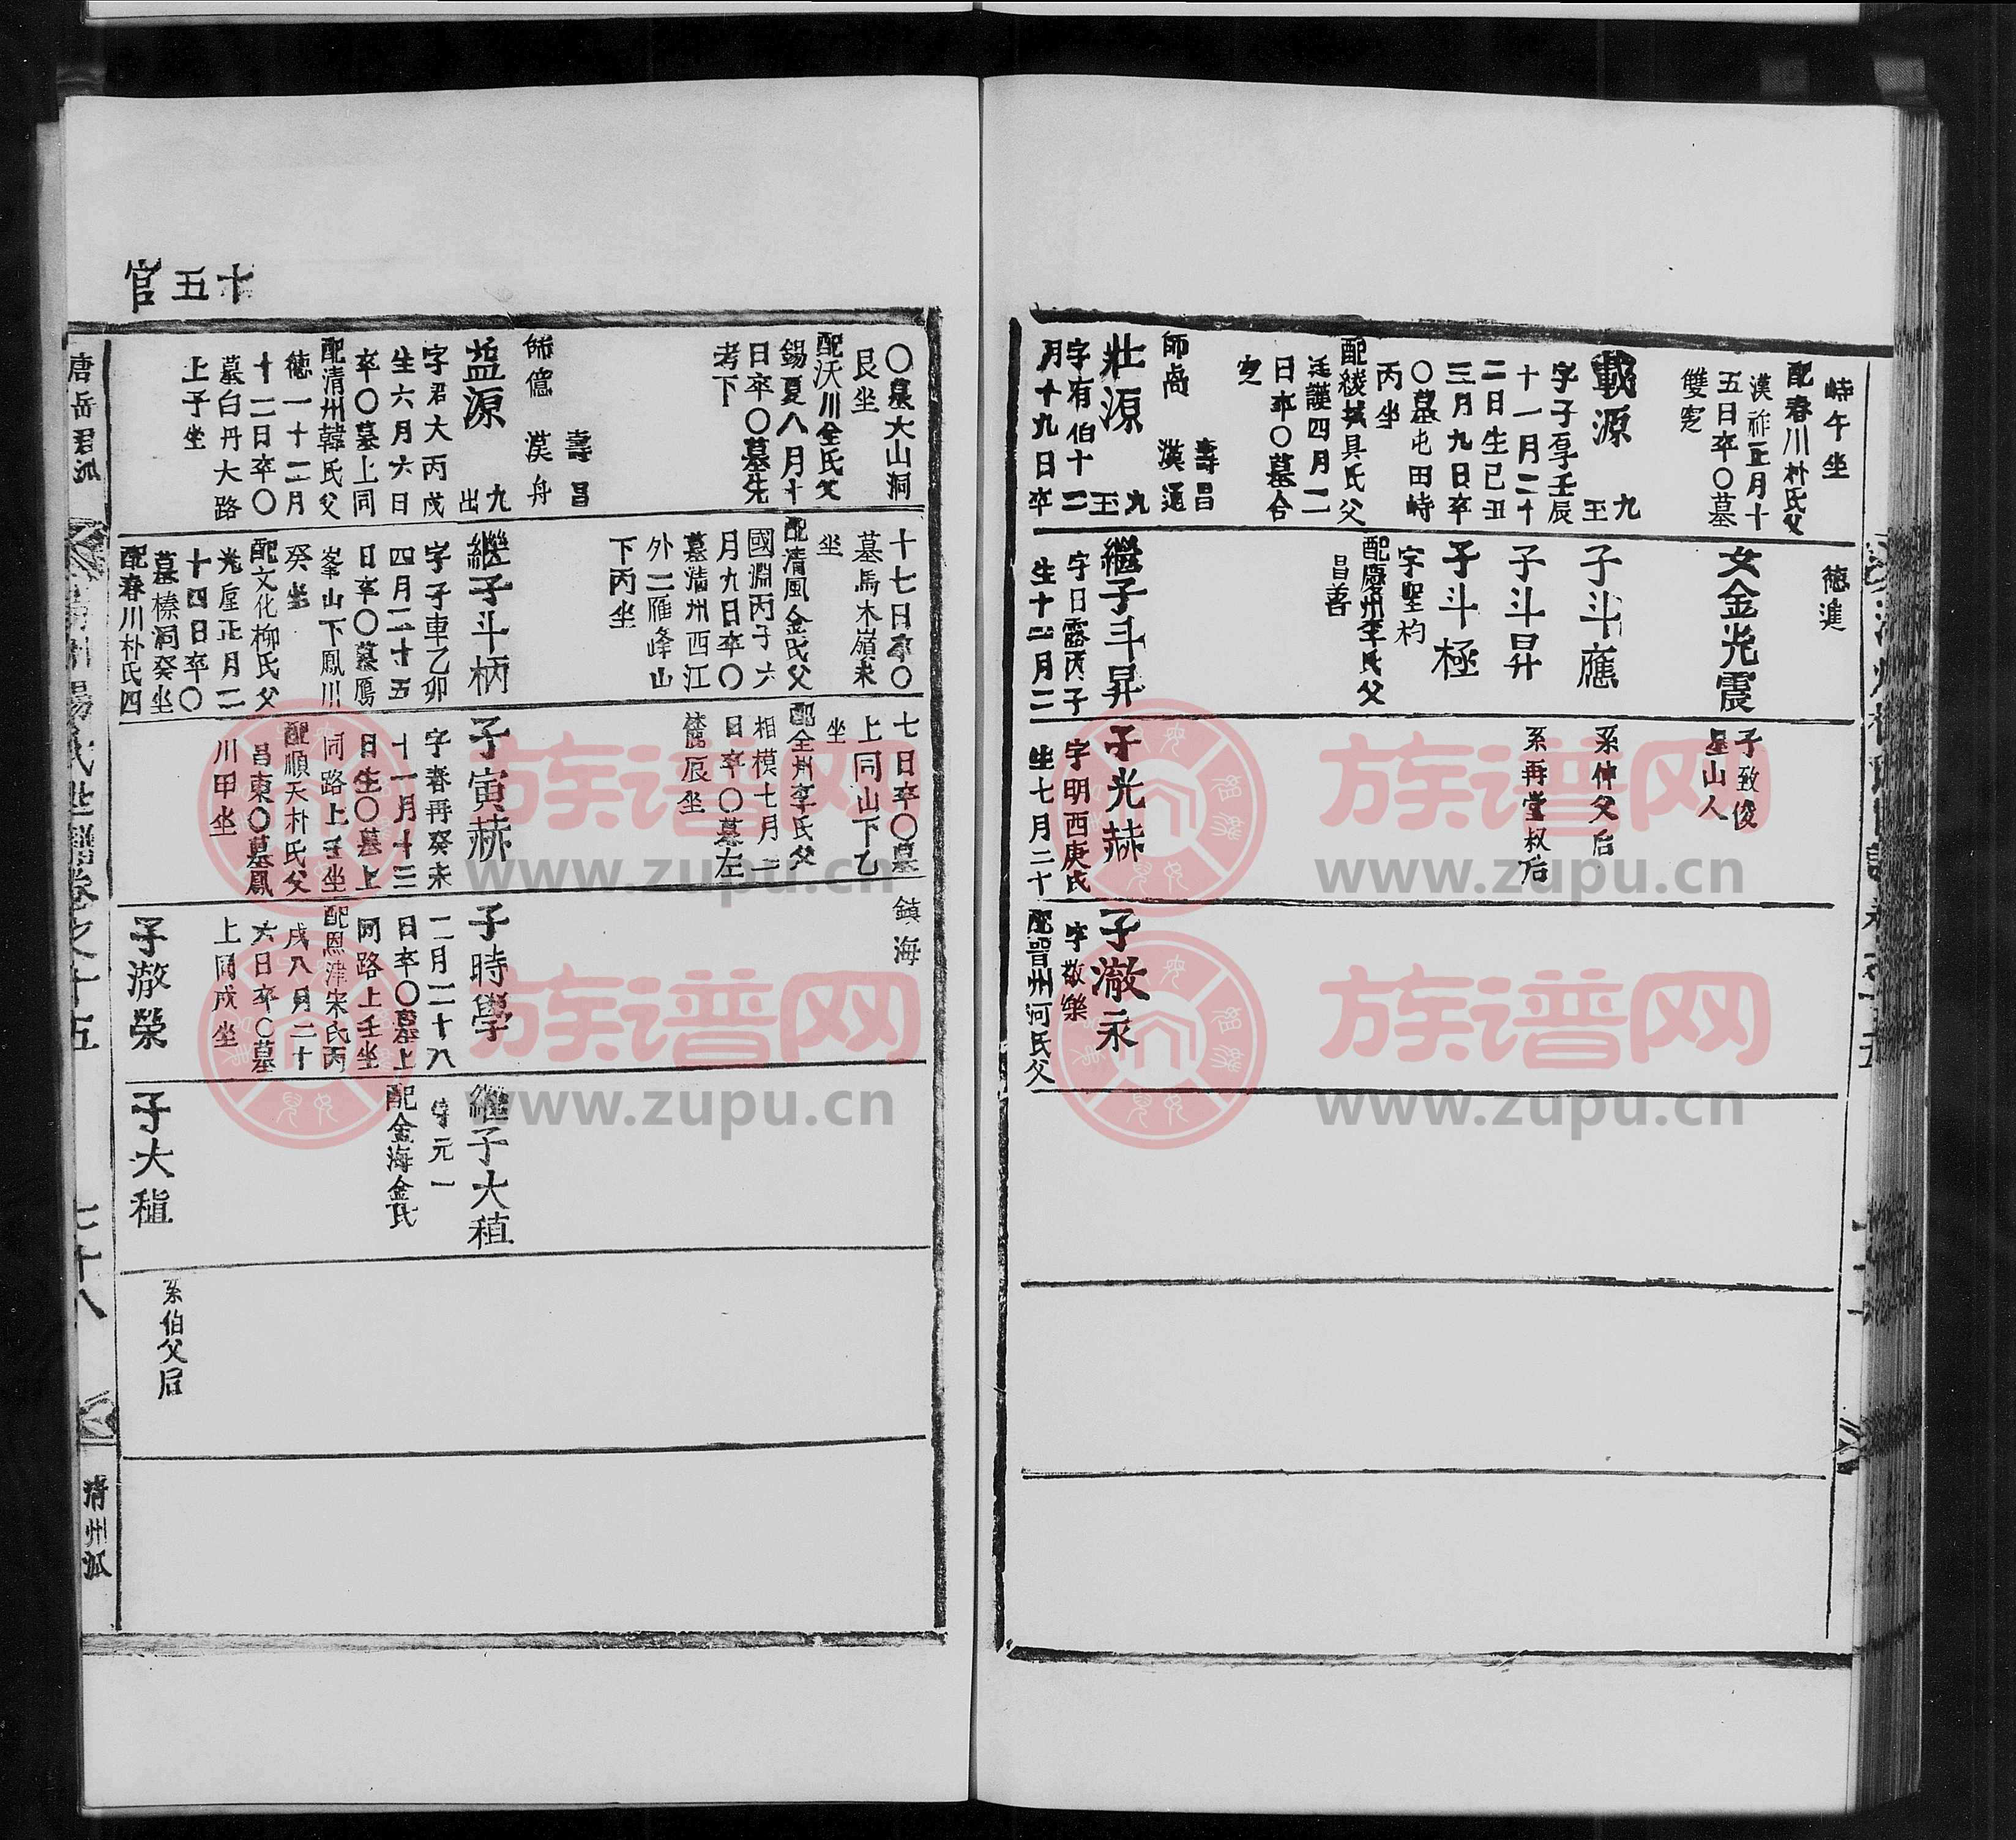 峙午坐
配春川朴氏父
漢祚正月十
五日卒〇墓
雙窆
載源
九
玉
字子享壬辰
十一月二十
二日生己丑
三月九日卒
〇墓屯田峙
丙坐
配綾城具氏父
廷謹四月二
日卒〇墓合
窆
壽昌
師尚 漢通
壯源
九
玉
字有伯十二
月十九日卒
德進
女金光震
子斗應
子斗昇
子斗極
字聖杓
配慶州李氏父
昌善
繼子斗昇
字日露丙子
生十二月二
子致俊
星山人
系仲父后
系再堂叔后
子光赫
字明西庚戌
生七月二十
子澈永
字敬樂
配晉州河氏父
十五官
〇墓大山洞
艮坐
配沃川全氏父
錫夏八月十
日卒〇墓先
考下
壽昌
師億 漢舟
益源
九
出
字君大丙戌
生六月六日
卒〇墓上同
配清州韓氏父
德一十二月
十二日卒〇
墓白丹大路
上子坐
十七日卒〇
墓馬木嶺未
坐
配清風金氏父
國淵丙子六
月九日卒〇
墓清州西江
外二雁峰山
下丙坐
繼子斗柄
字子車乙卯
四月二十五
日卒〇墓鳳
峯山下鳳川
癸坐
配文化柳氏父
光垕正月二
十四日卒〇
墓榛洞癸坐
配春川朴氏四
七日卒〇墓
上同山下乙
坐
配全州李氏父
相模七月二
日卒〇墓左
麓辰坐
子寅赫
字春再癸未
十一月十三
日生〇墓上
同路上壬坐
配順天朴氏父
昌東〇墓鳳
川甲坐
鎮海
子時學
二月二十八
日卒〇墓上
同路上壬坐
配恩津宋氏丙
戌八月二十
六日卒〇墓
上同戌坐
子澈榮
繼子大稙
字元一
配金海金氏
子大稙
系伯父后
唐岳君派
楊氏世譜卷之十五
七十八
清州派